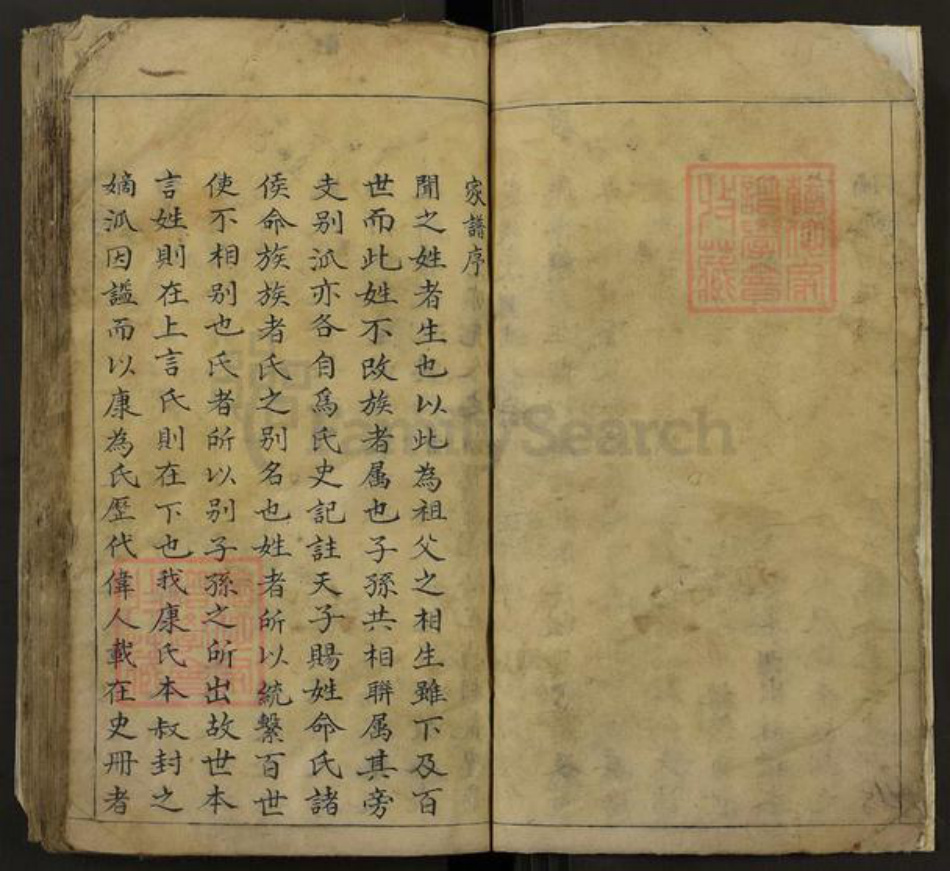 家譜序
聞之姓者生也以此為祖父之相生雖下及百
世而此姓不改族者属也子孫共相聨属其旁
支别派亦各自爲氏史記註天子賜姓命氏諸
侯命族族者氏之别名也姓者所以統繫百世
使不相别也氏者所以别子孫之所出故世本
言姓則在上言氏則在下也我康氏本叔封之
嫡派因謚而以康為氏歷代偉人載在史冊者
FamilySearch